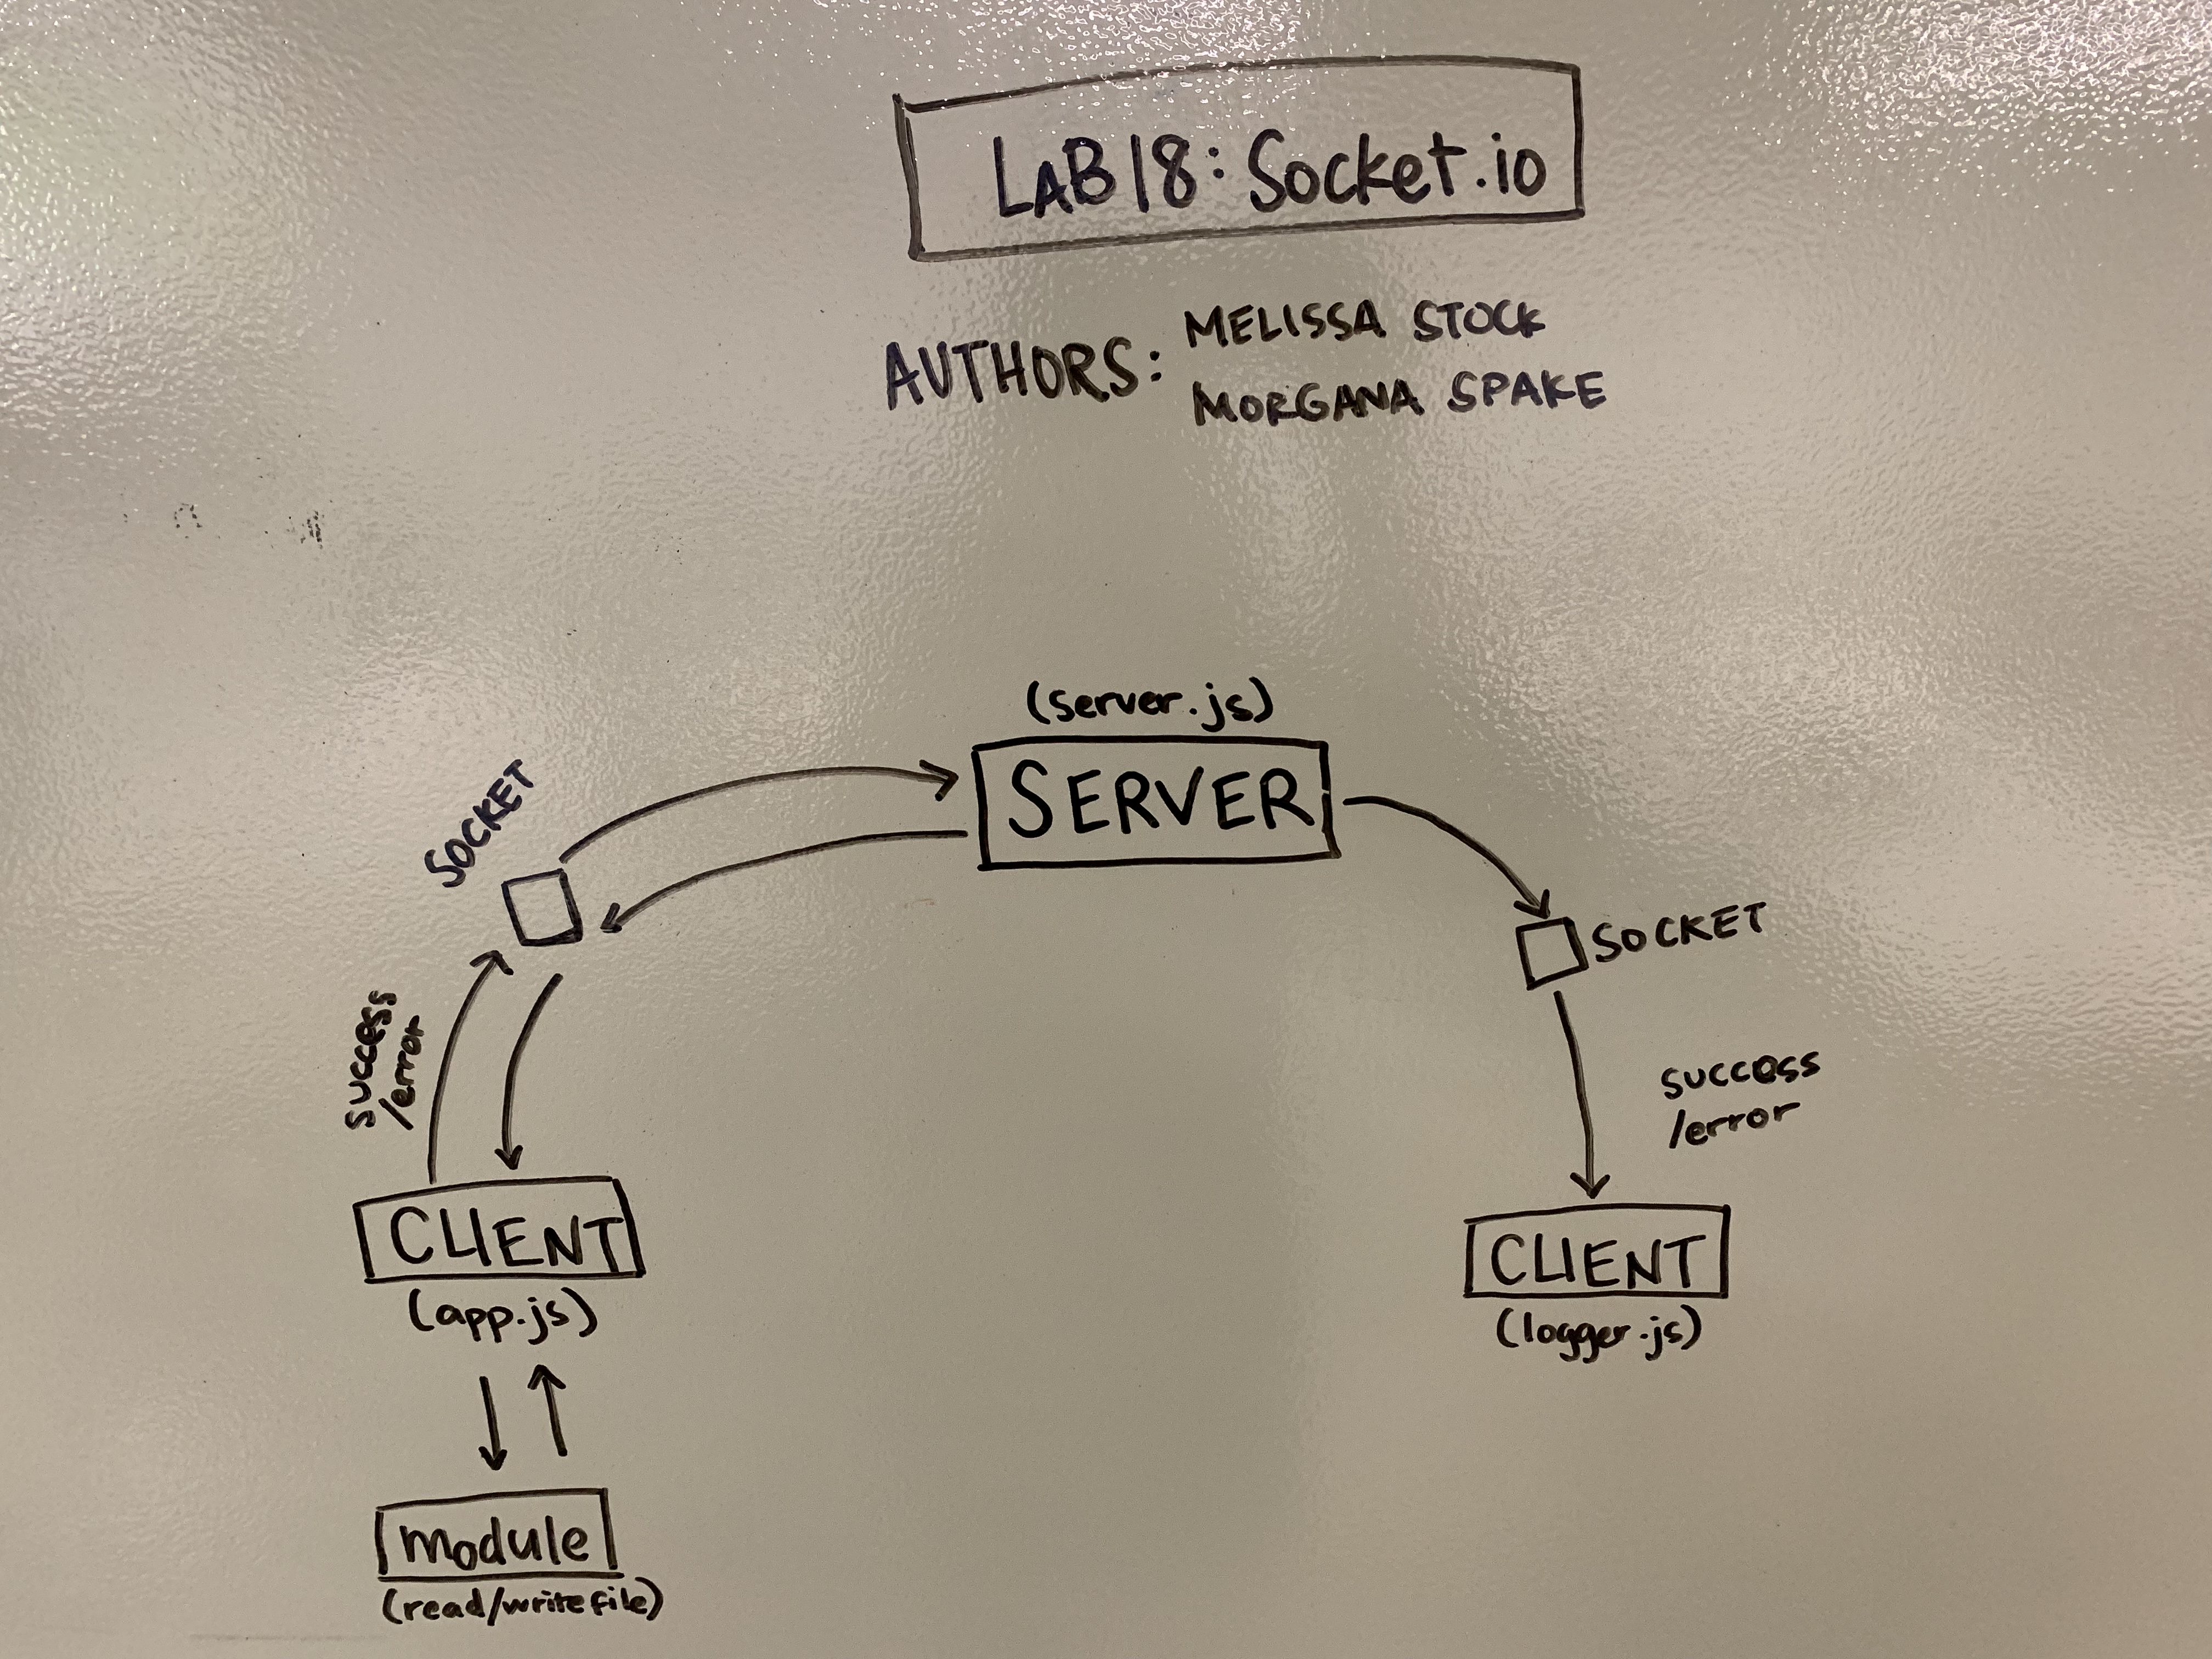 LAB 18: Socket.io
AUTHORS: MELISSA STOCK
MORGANA SPAKE
(server.js)
SERVER
SOCKET
SOCKET
success
/error
success
/error
CLIENT
(app.js)
CLIENT
(logger.js)
module
(read/write file)